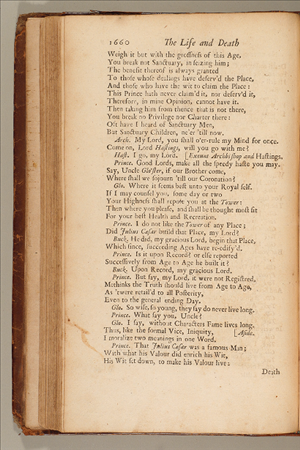 1660 The Life and Death
Weigh it but with the grossness of this Age,
You break not Sanctuary, in seizing him;
The benefit thereof is always granted
To those whose dealings have deserv'd the Place,
And those who have the wit to claim the Place:
This Prince hath neither claim'd it, nor deserv'd it,
Therefore, in mine Opinion, cannot have it.
Then taking him from thence that is not there,
You break no Privilege nor Charter there:
Oft have I heard of Sanctuary Men,
But Sanctuary Children, ne'er 'till now.
Arch. My Lord, you shall o'er-rule my Mind for once.
Come on, Lord Hastings, will you go with me?
Hast. I go, my Lord. [Exeunt Archbishop and Hastings.
Prince. Good Lords, make all the speedy haste you may.
Say, Uncle Glo'ster, if our Brother come,
Where shall we sojourn 'till our Coronation?
Glo. Where it seems best unto your Royal self.
If I may counsel you, some day or two
Your Highness shall repose you at the Tower:
Then where you please, and shall be thought most fit
For your best Health and Recreation.
Prince. I do not like the Tower of any Place;
Did Julius Cæsar build that Place, my Lord?
Buck. He did, my gracious Lord, begin that Place,
Which since, succeeding Ages have re-edify'd.
Prince. Is it upon Record? or else reported
Successively from Age to Age he built it?
Buck. Upon Record, my gracious Lord.
Prince. But say, my Lord, it were not Registred,
Methinks the Truth should live from Age to Age,
As 'twere retail'd to all Posterity,
Even to the general ending Day.
Glo. So wise, so young, they say do never live long.
Prince. What say you, Uncle?
Glo. I say, without Characters Fame lives long.
Thus, like the formal Vice, Iniquity, [Aside.
I moralize two meanings in one Word.
Prince. That Julius Cæsar was a famous Man;
With what his Valour did enrich his Wit,
His Wit set down, to make his Valour live:
Death